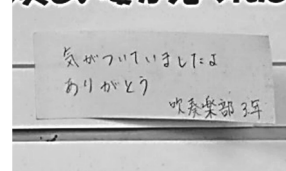 気がついていましたよ
ありがとう
吹奏楽部 3年